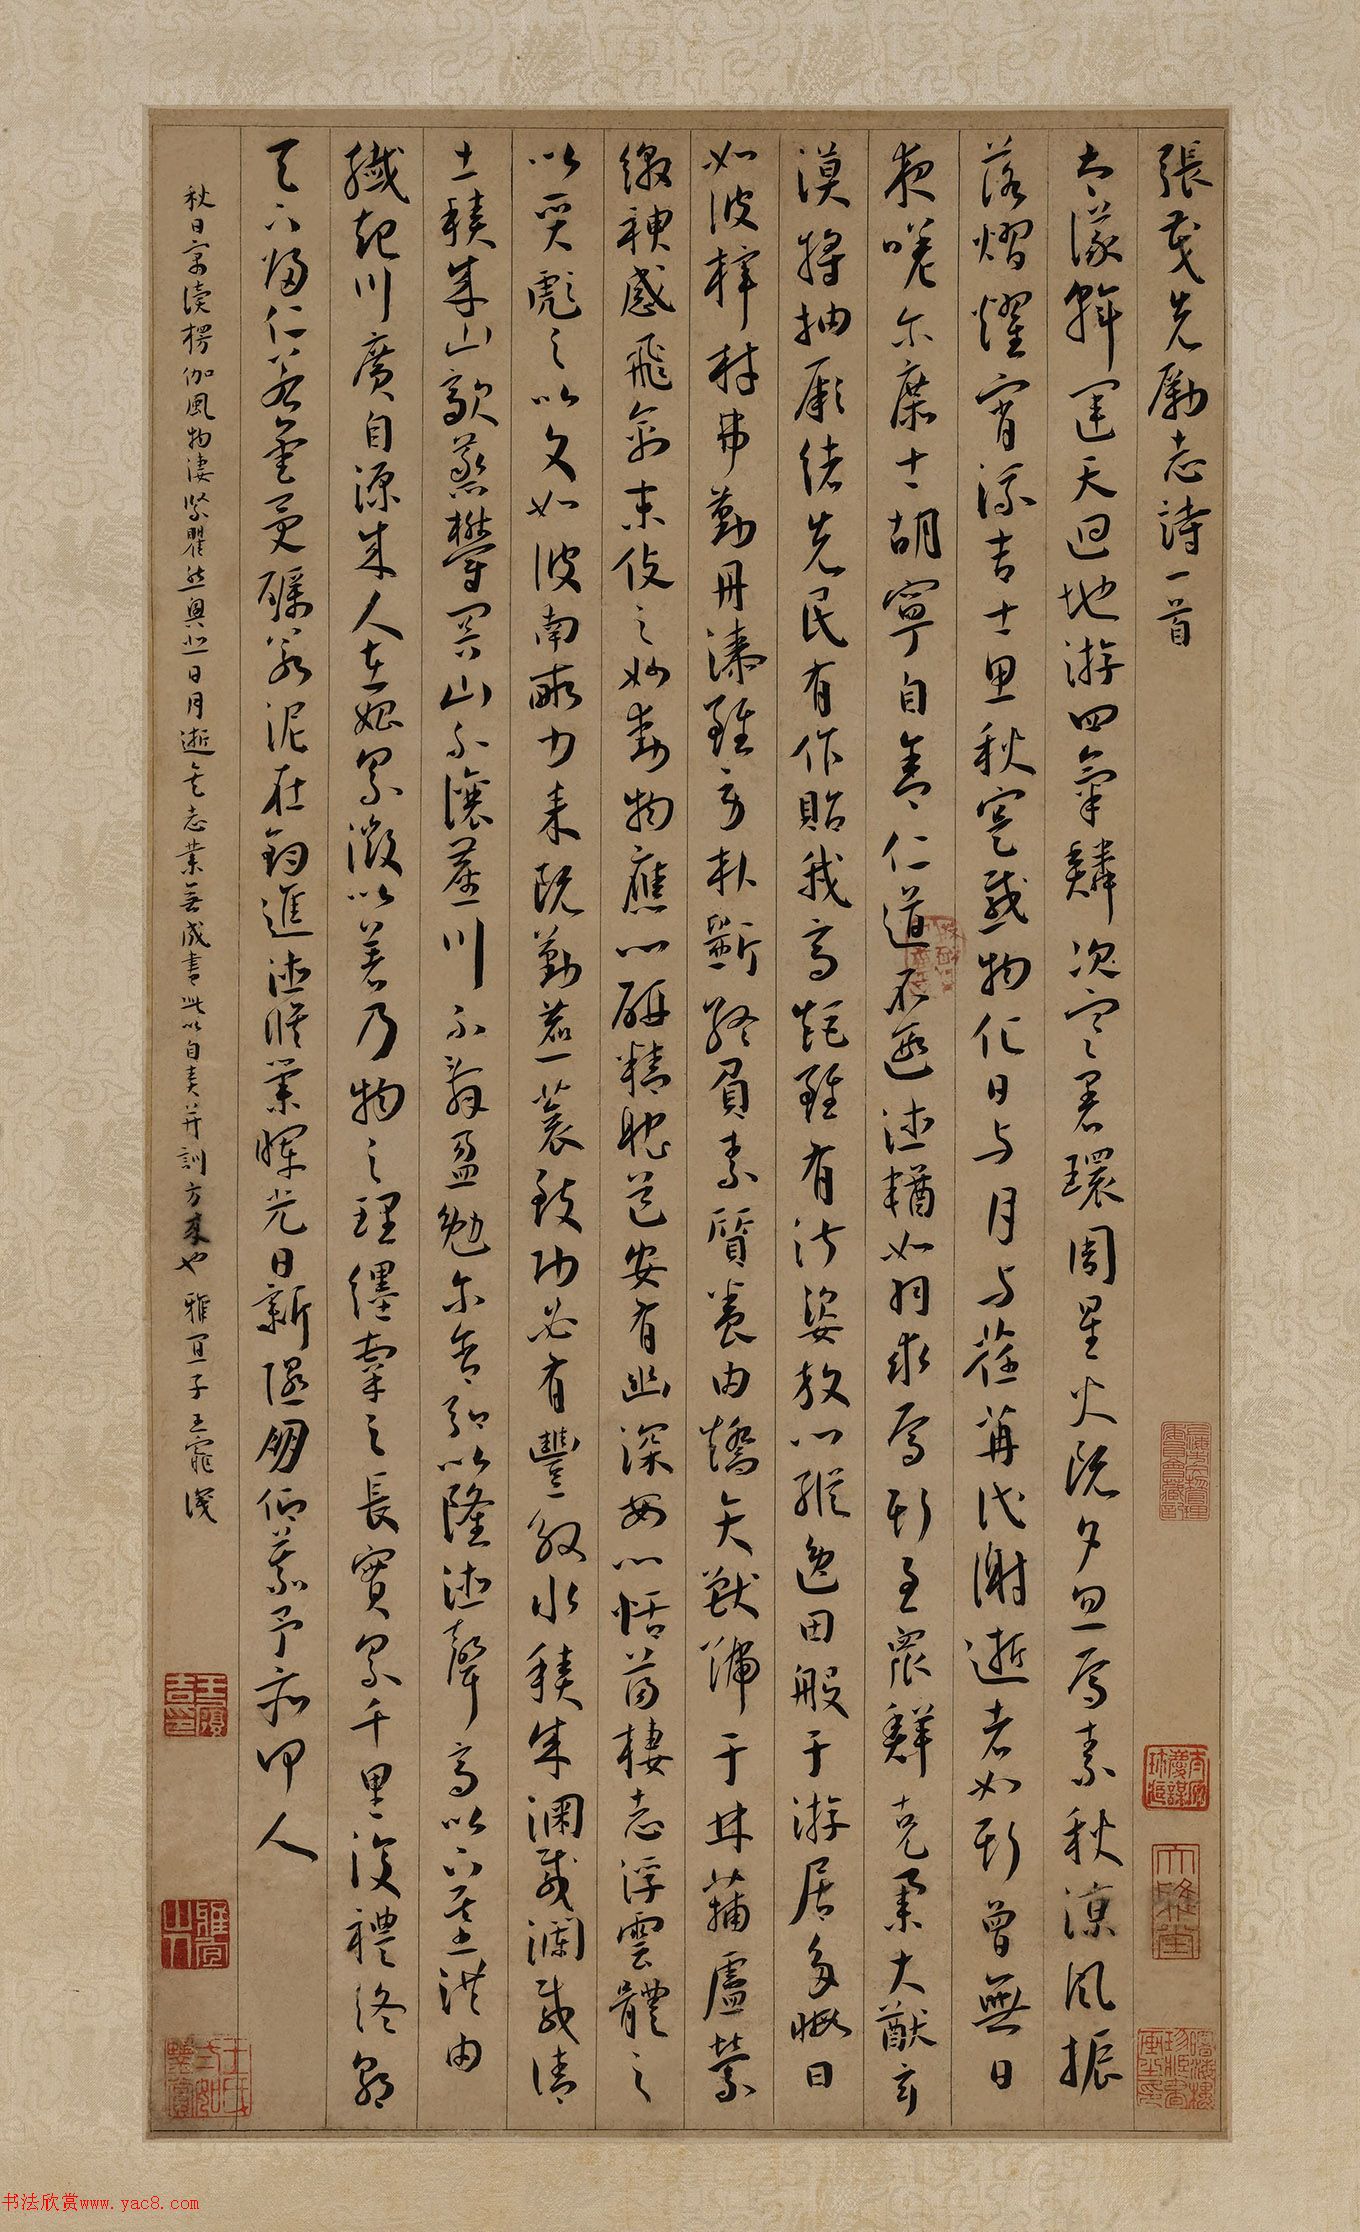 張茂先勵志詩一首
太儀斡運天迴地游四氣鱗次寒暑環周星火既夕忽焉素秋涼風振
落熠燿宵流吉士思秋寔感物化日与月与荏苒代謝逝者如斯曾無日
夜嗟尔庶士胡寧自舍仁道不遐德輶如羽求焉斯至衆鮮克舉大猷玄
漠將抽厥緒先民有作貽我高矩雖有淑姿放心縱逸田般于游居多暇日
如彼梓材弗勤丹漆雖勞朴斲終負素質養由矯矢獸號于林蒲盧縈
繳神感飛禽末伎之妙動物應心研精耽道安有幽深安心恬蕩棲志浮雲體之
以質彪之以文如彼南畝力耒既勤藨蓘致功必有豐殷水積成淵載瀾載清
土積成山歊蒸鬱冥山不讓塵川不辭盈勉尔含弘以隆德聲高以下基洪由
纖起川廣自源成人在始累微以著乃物之理纆牽之長實累千里復禮終朝
天下歸仁若金受礪若泥在鈞進德脩業暉光日新隰朋仰慕予亦何人
秋日讀楞伽風物淒緊瞿然興悲日月逝矣志業無成書此以自責并訓方来也 雅宜子王寵識
王履吉印
雅宜山人
大雅堂
书法欣赏www.yac8.com